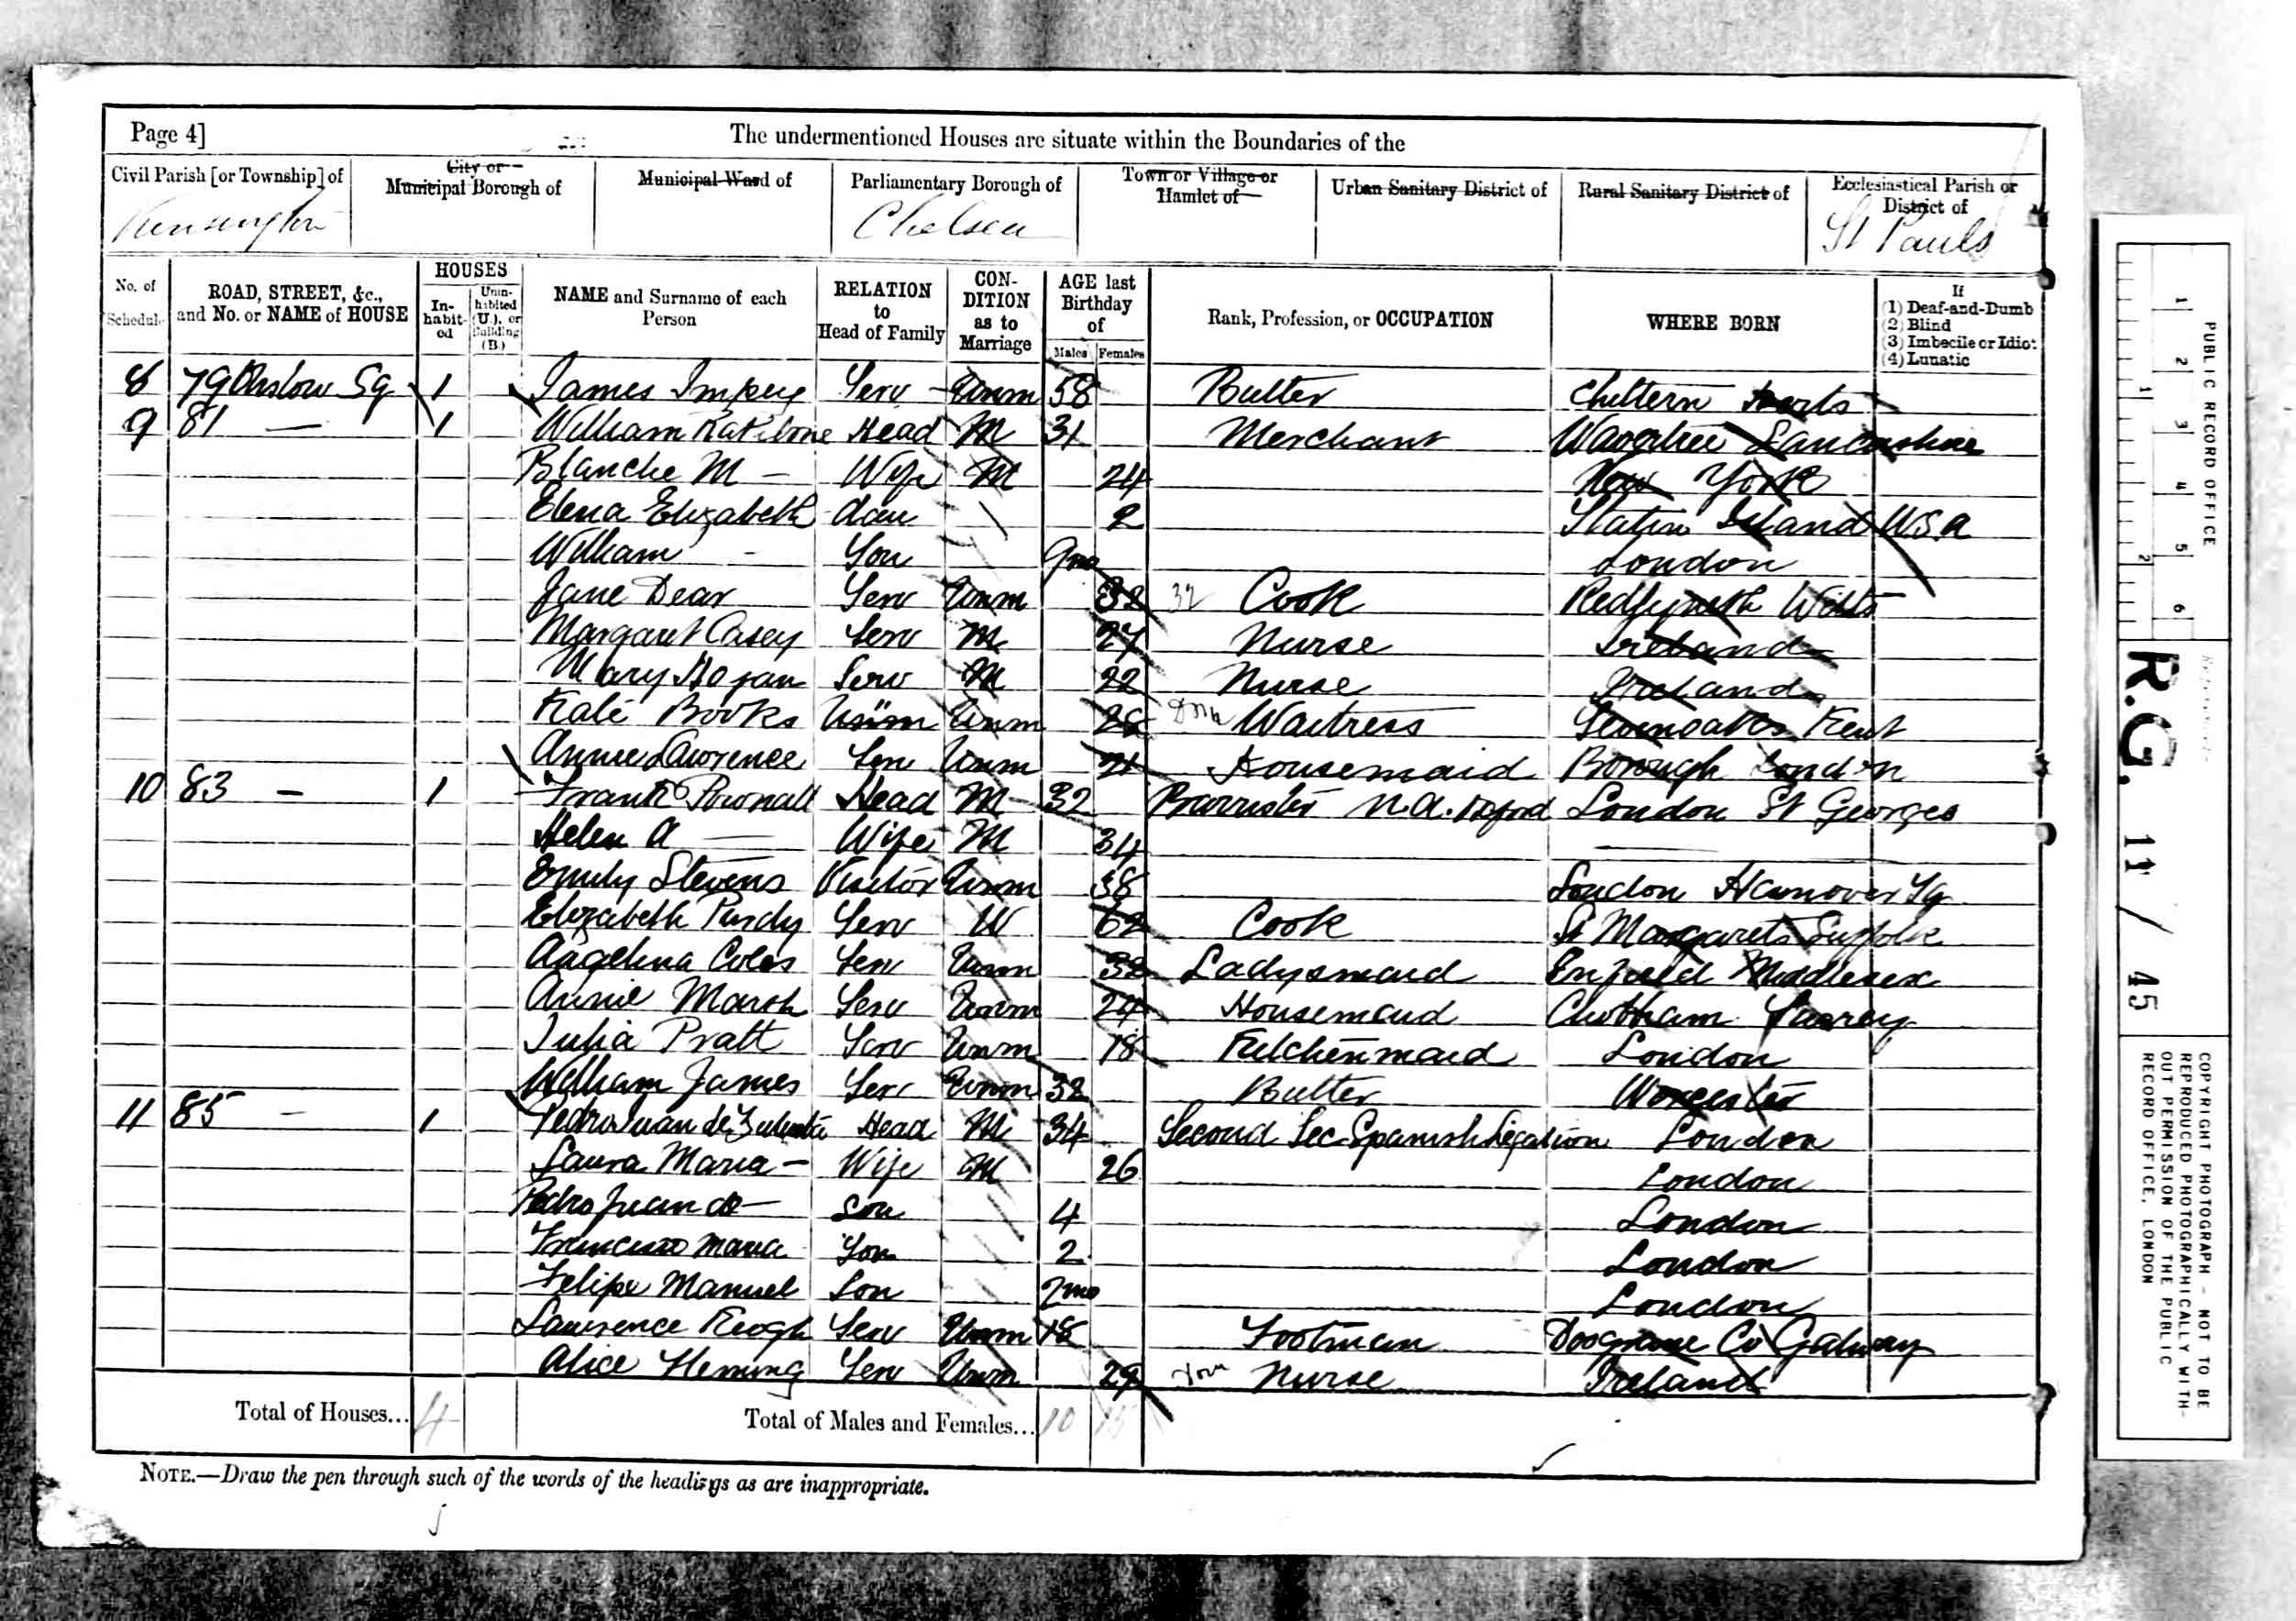 Page 4]
The undermentioned Houses are situate within the Boundaries of the
Civil Parish [or Township] of
City or
Municipal Borough of
Municipal Ward of
Parliamentary Borough of
Town or Village or
Hamlet of
Urban Sanitary District of
Rural Sanitary District of
Ecclesiastical Parish or
District of
Kensington
Chelsea
St Pauls
No. of Schedule
ROAD, STREET, &c., and No. or NAME of HOUSE
HOUSES
In-habit-ed
Unin-habited (U.), or Building (B.)
NAME and Surname of each Person
RELATION to Head of Family
CON-DITION as to Marriage
AGE last Birthday of
Males
Females
Rank, Profession, or OCCUPATION
WHERE BORN
If
(1) Deaf-and-Dumb
(2) Blind
(3) Imbecile or Idiot
(4) Lunatic
8 79 Onslow Sq 1 James Impey Serv Unm 58 Butler Chiltern Herts
9 81 — 1 William Rathbone Head M 31 Merchant Wavertree Lancashire
Blanche M — Wife M 24 New York
Elena Elizabeth dau 2 Staten Island U.S.A
William - Son 9mo London
Jane Dear Serv Unm 32 32 Cook Wilts
Margaret Casey Serv M 27 Nurse Ireland
Mary Hogan Serv M 22 Nurse Ireland
Kate Books Unm 28 Dom Waitress Sevenoaks Kent
Annie Lawrence Serv Unm 21 Housemaid Borough London
10 83 — 1 Frank Pownall Head M 32 Barrister M.A. Oxford London St Georges
Helen A — Wife M 34 —
Emily Stevens Visitor Unm 38 London Hanover Sq
Elizabeth Purdy Serv W 62 Cook St Margarets Suffolk
Angelina Coles Serv Unm 32 Ladysmaid Enfield Middlesex
Annie Marsh Serv Unm 24 Housemaid Chobham Surrey
Julia Pratt Serv Unm 18 Kitchenmaid London
William James Serv Unm 32 Butler Worcester
11 85 — 1 Pedro Juan de Zulueta Head M 34 Second Sec Spanish Legation London
Laura Maria — Wife M 26 London
Pedro Juan do — Son 4 London
Francisco Maria Son 2 London
Felipe Manuel Son 2mo London
Lawrence Keogh Serv Unm 18 Footman Co Galway
Alice Fleming Serv Unm 29 Dom Nurse Ireland
Total of Houses... 4
Total of Males and Females... 10 15
NOTE.—Draw the pen through such of the words of the headings as are inappropriate.
PUBLIC RECORD OFFICE
1 2 3 4 5 6
1 2
R.G. 11 / 45
COPYRIGHT PHOTOGRAPH - NOT TO BE
REPRODUCED PHOTOGRAPHICALLY WITH-
OUT PERMISSION OF THE PUBLIC
RECORD OFFICE, LONDON